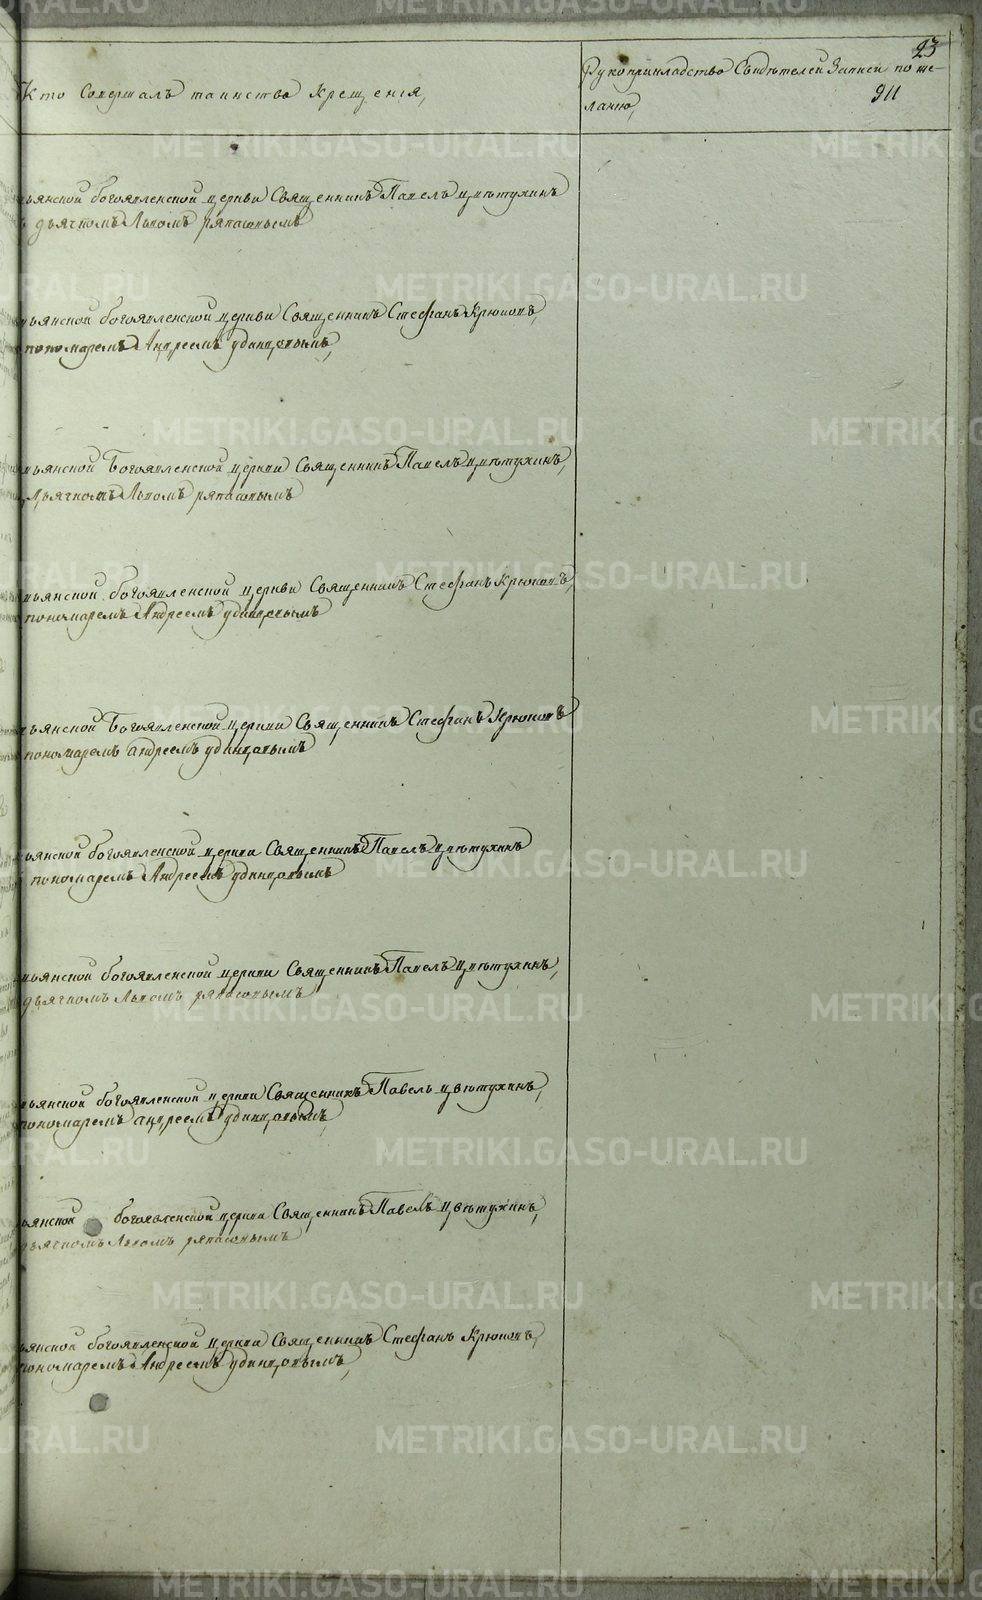 23
Кто Совершалъ таинство крещенія,
Рукоприкладство Свидѣтелей Записей по же-
ланію,
911
ьянской богоявленской церкви Священникъ Павелъ Цвѣтухинъ
дьячкомъ Львомъ
ьянской богоявленской церкви Священникъ Стефанъ Крюковъ,
пономаремъ Андреемъ Удинцовымъ,
ьянской Богоявленской церкви Священникъ Павелъ Цвѣтухинъ,
Дьячкомъ Львомъ
ьянской богоявленской церкви Священникъ Стефанъ Крюковъ,
пономаремъ Андреемъ Удинцовымъ
ьянской Богоявленской церкви Священникъ Стефанъ Крюковъ
пономаремъ андреемъ Удинцовымъ
ьянской богоявленской церкви Священникъ Павелъ Цвѣтухинъ
пономаремъ Андреемъ Удинцовымъ
ьянской богоявленской церкви Священникъ Павелъ Цвѣтухинъ,
дьячкомъ Львомъ
ьянской богоявленской церкви Священникъ Павелъ Цвѣтухинъ,
пономаремъ андреемъ Удинцовымъ,
ьянской богоявленской церкви Священникъ Павелъ Цвѣтухинъ,
дьячкомъ Львомъ
ьянской богоявленской церкви Священникъ Стефанъ Крюковъ,
пономаремъ Андреемъ Удинцовымъ,
METRIKI.GASO-URAL.RU